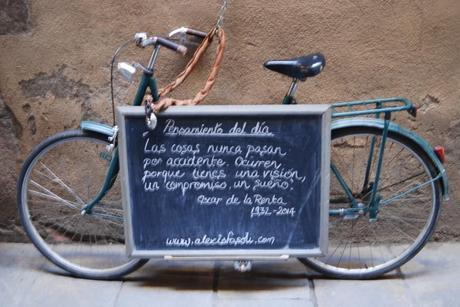 Pensamiento del día
Las cosas nunca pasan
por accidente. Ocurren
porque tienes una visión,
un compromiso, un sueño.
Oscar de la Renta
1932 - 2014